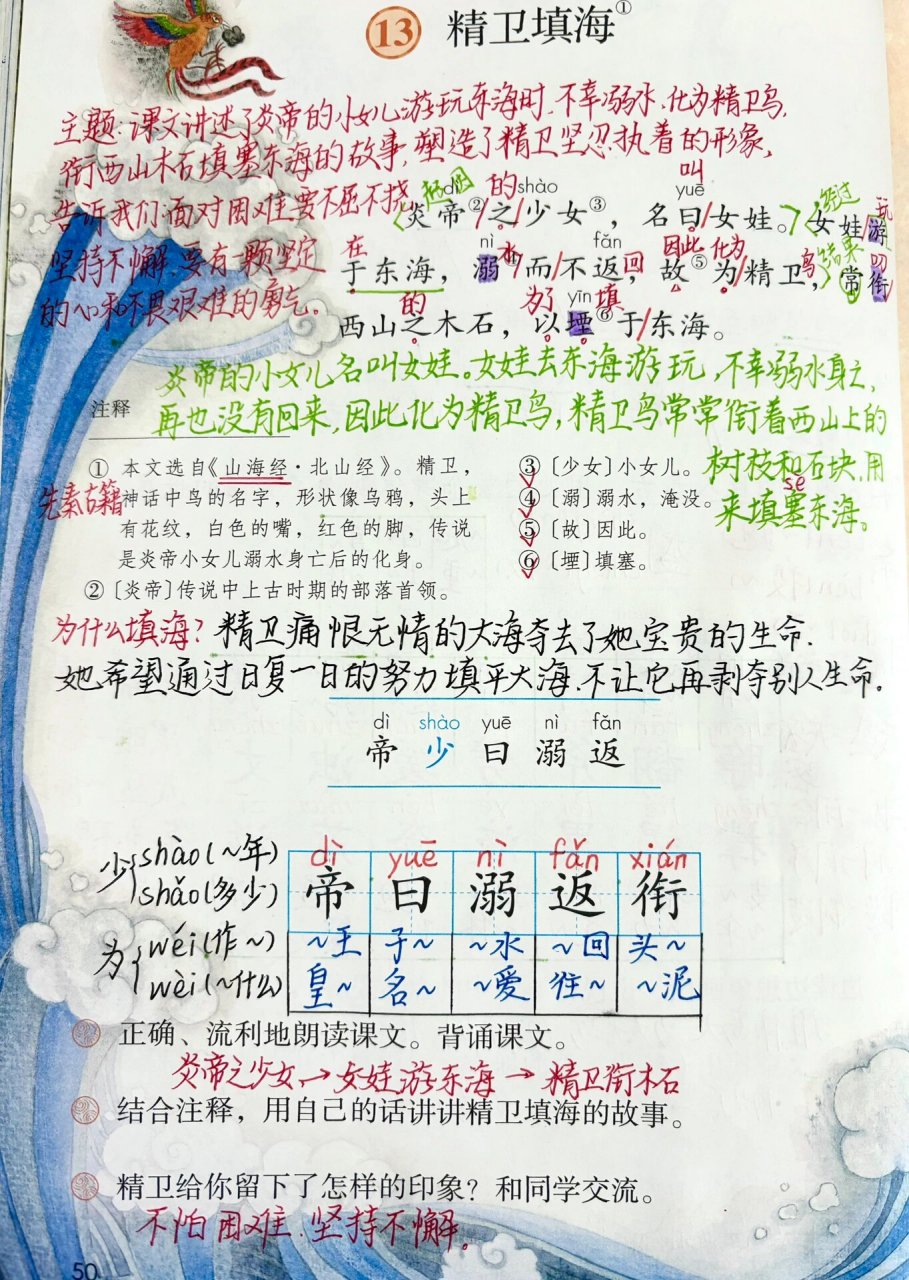 13 精卫填海①
主题:课文讲述了炎帝的小女儿游玩东海时,不幸溺水,化为精卫鸟,
衔西山木石填塞东海的故事,塑造了精卫坚忍执着的形象,
告诉我们面对困难要不屈不挠
坚持不懈,要有一颗坚定
的心和不畏艰难的勇气。
叫
dì 的 shào yuē 经过
炎帝②/之/少女③,名曰/女娃。女娃游 玩
在 nì 水 fǎn 回 因此 化为 鸟 结果 叼
于东海,溺/而/不返,故⑤/为/精卫,常衔
的 为了 yīn 填
西山之木石,以堙⑥于/东海。
炎帝的小女儿名叫女娃。女娃去东海游玩,不幸溺水身亡,
再也没有回来,因此化为精卫鸟,精卫鸟常常衔着西山上的
树枝和石块,用
sè
来填塞东海。
注释
① 本文选自《山海经·北山经》。精卫,
先秦古籍
神话中鸟的名字,形状像乌鸦,头上
有花纹,白色的嘴,红色的脚,传说
是炎帝小女儿溺水身亡后的化身。
②〔炎帝〕传说中上古时期的部落首领。
③〔少女〕小女儿。
④〔溺〕溺水,淹没。
⑤〔故〕因此。
⑥〔堙〕填塞。
为什么填海?精卫痛恨无情的大海夺去了她宝贵的生命.
她希望通过日复一日的努力填平大海.不让它再剥夺别人生命。
dì shào yuē nì fǎn
帝 少 曰 溺 返
少 shào(~年)
shǎo(多少)
为 wéi(作~)
wèi(~什么)
dì yuē nì fǎn xián
帝 曰 溺 返 衔
~王 子~ ~水 ~回 头~
皇~ 名~ ~爱 往~ ~泥
正确、流利地朗读课文。背诵课文。
炎帝之少女→女娃游东海→精卫衔木石
结合注释,用自己的话讲讲精卫填海的故事。
精卫给你留下了怎样的印象?和同学交流。
不怕困难.坚持不懈。
50